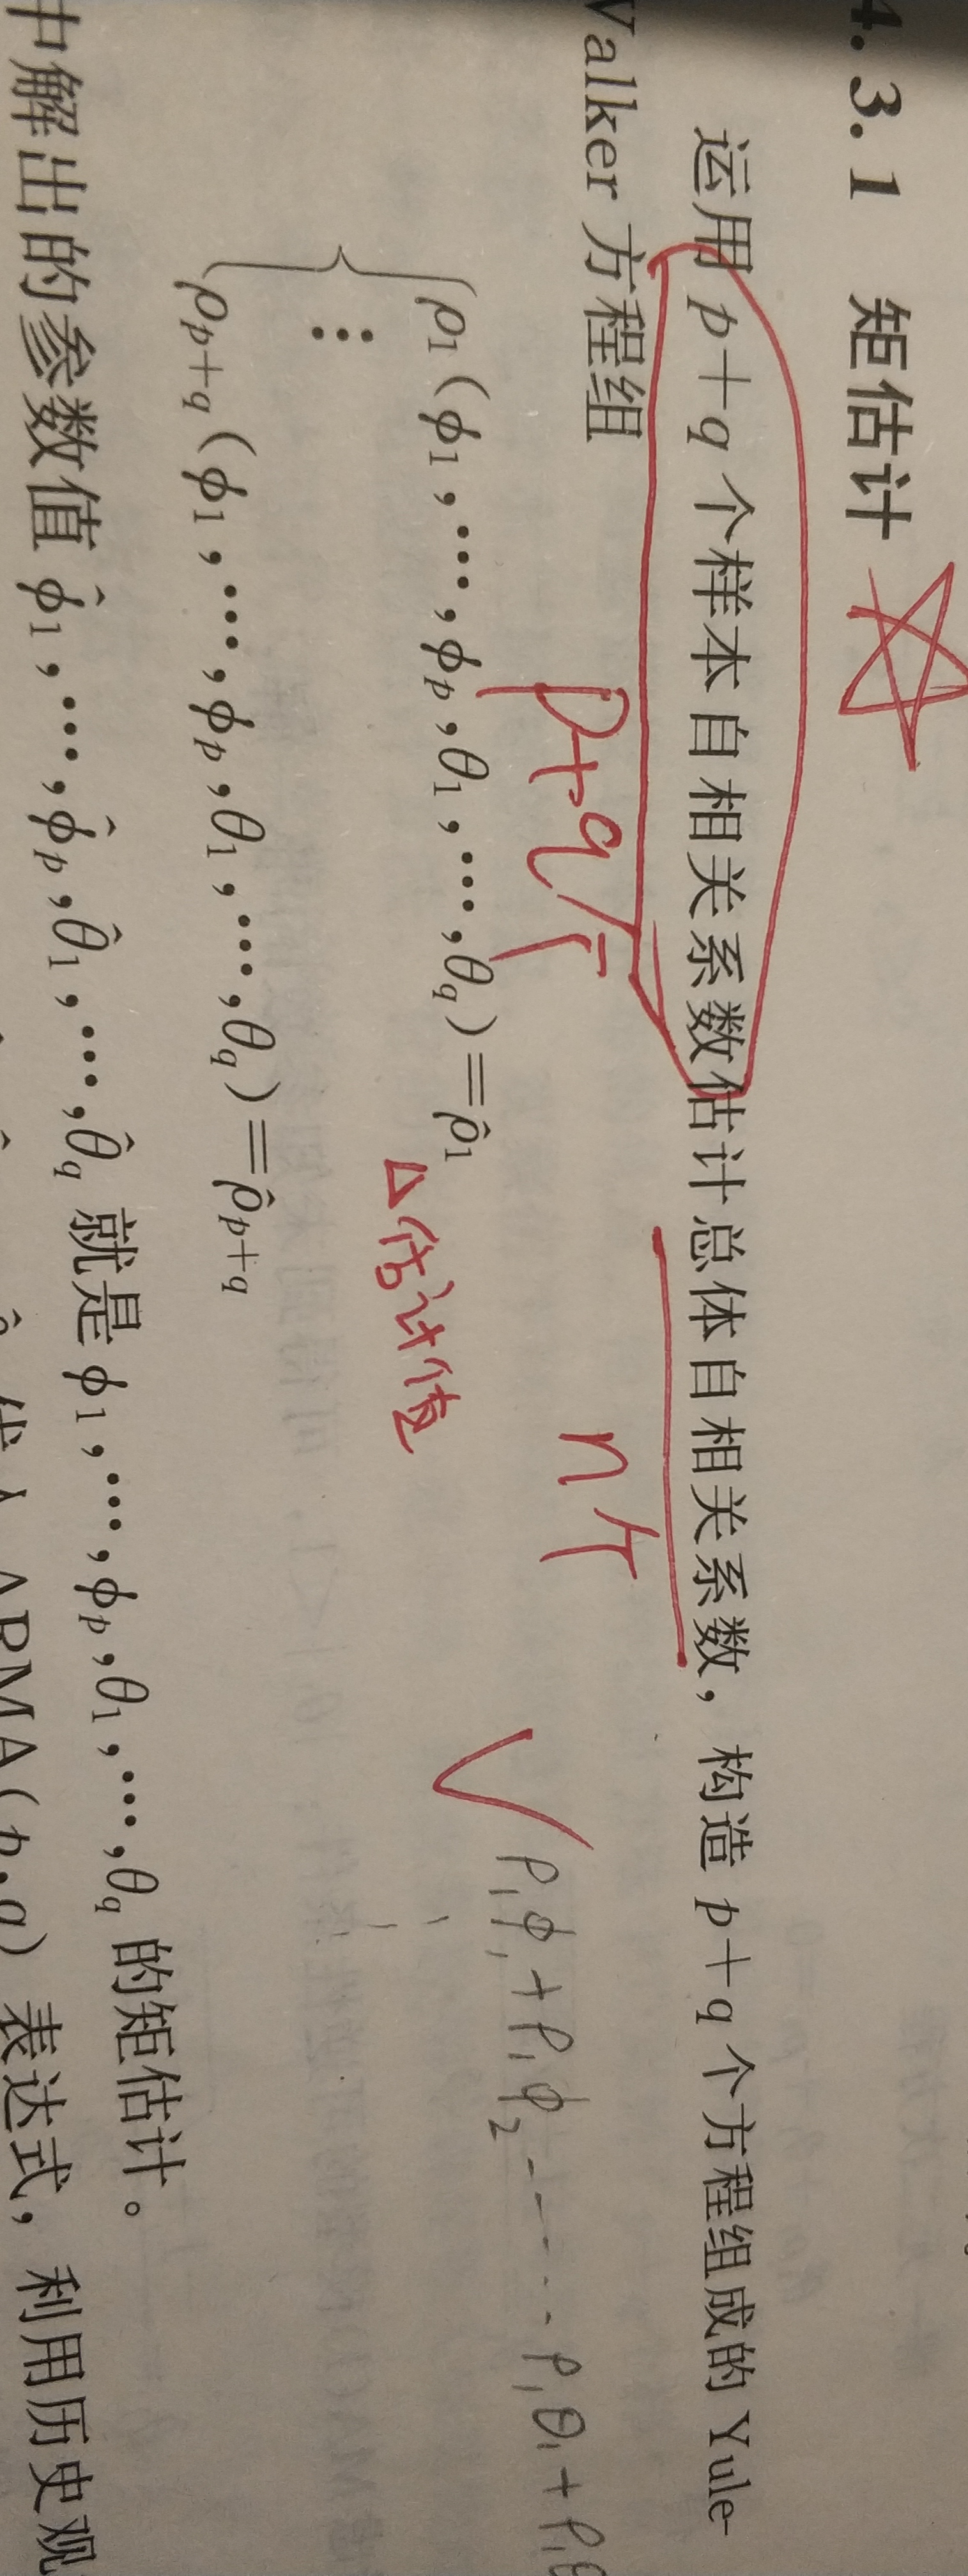 4.3.1 矩估计
运用 p+q 个样本自相关系数估计总体自相关系数，构造 p+q 个方程组成的 Yule-
Walker 方程组
p+q个
n个
ρ₁(ϕ₁,⋯,ϕₚ,θ₁,⋯,θq)=ρ̂₁
△估计值
ρ₁ϕ₁+ρ₁ϕ₂-----ρ₁θ₁+ρ₁θ
⋮
ρp+q(ϕ₁,⋯,ϕₚ,θ₁,⋯,θq)=ρ̂p+q
中解出的参数值 ϕ̂₁,⋯,ϕ̂ₚ,θ̂₁,⋯,θ̂q 就是 ϕ₁,⋯,ϕₚ,θ₁,⋯,θq 的矩估计。
ARMA(p,q) 表达式，利用历史观